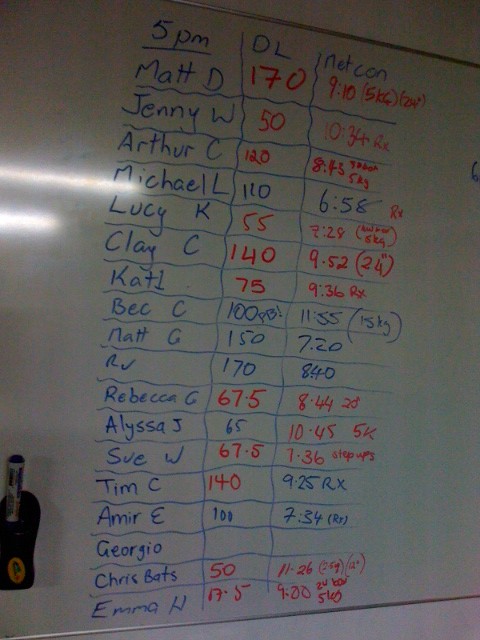 5pm DL Metcon
Matt D 170 9:10 (5KG) (20")
Jenny W 50 10:34 Rx
Arthur C 120 8:43 5kg
Michael L 110 6:58 Rx
Lucy K 55 7:28 5kg
Clay C 140 9.52 (24")
Kat 75 9:36 Rx
Bec C 100 11:55 (15kg)
Matt G 150 7.20
170 8:40
Rebecca G 67.5 8:44
Alyssa J 65 10:45 5K
Sue W 67.5 7.36 step ups
Tim C 140 9.25 RX
Amir E 100 7:34 (Rx)
Georgio
Chris Bats 50 11.26
Emma H 17.5 9:00 5kg